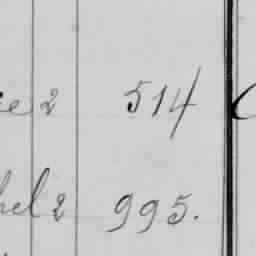 2 514
2 995.